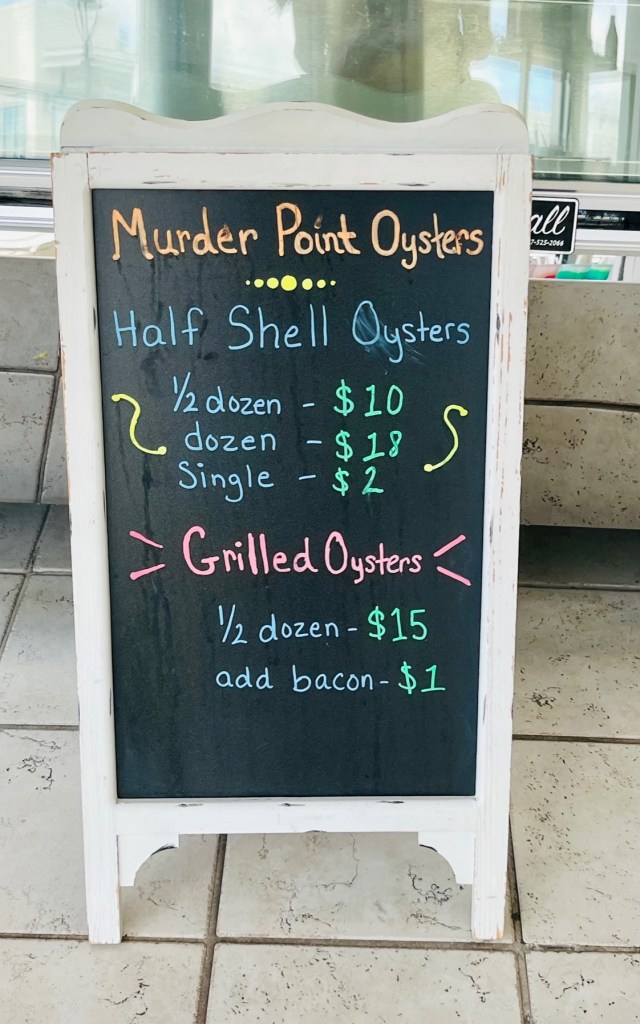 Murder Point Oysters
Half Shell Oysters
1/2 dozen - $10
dozen - $18
Single - $2
Grilled Oysters
1/2 dozen - $15
add bacon - $1
all
7-525-2066